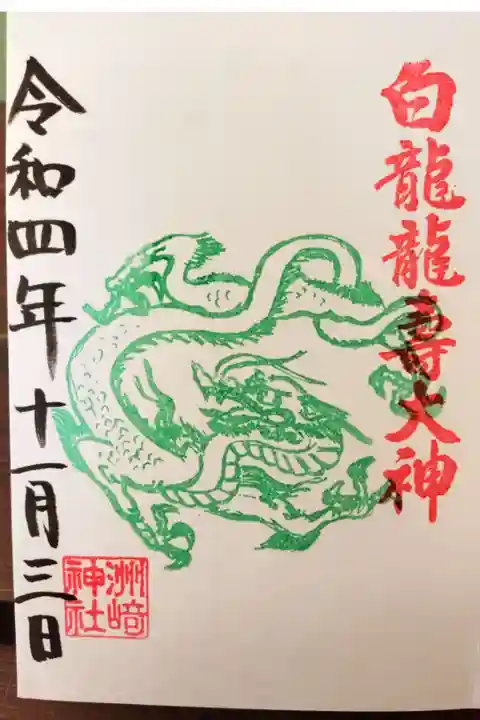 白龍龍壽大神
令和四年十一月三日
洲﨑
神社